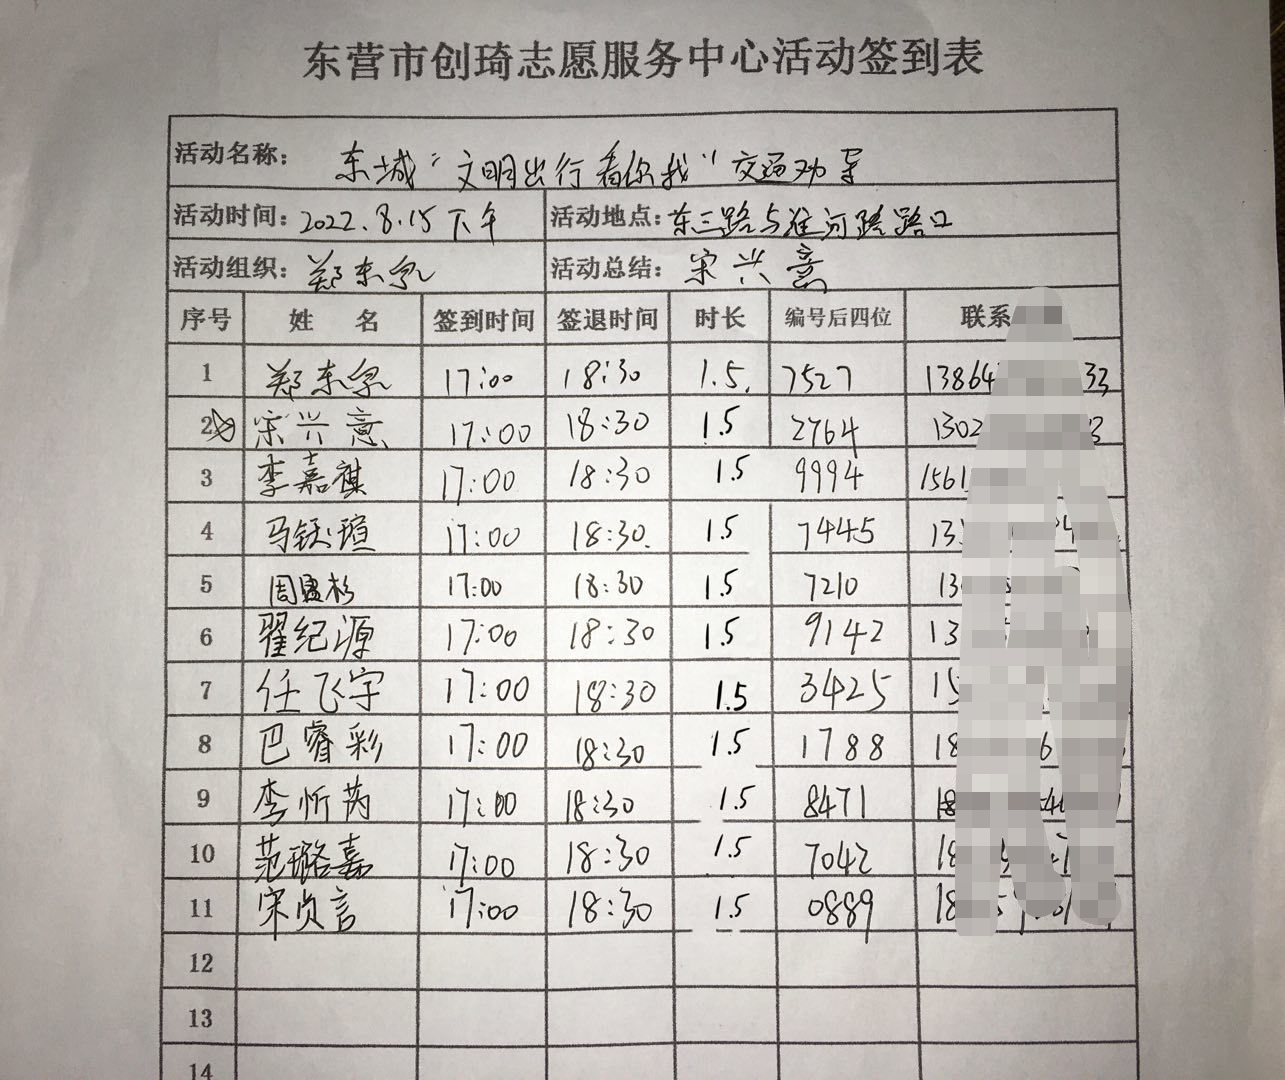 东营市创琦志愿服务中心活动签到表
活动名称: 东城"文明出行看你我"交通劝导
活动时间: 2022.8.15下午 活动地点: 东三路与淮河路路口
活动组织: 郑东 活动总结: 宋兴意
序号 姓名 签到时间 签退时间 时长 编号后四位 联系
1 郑东 17:00 18:30 1.5. 7527 13864 33
2 宋兴意 17:00 18:30 1.5 2764 1302 3
3 李嘉祺 17:00 18:30 1.5 9994 1561
4 马钰瑄 17:00 18:30. 1.5 7445 13
5 周 杉 17:00 18:30 1.5 7210 13
6 翟纪源 17:00 18:30 1.5 9142 13
7 任飞宇 17:00 18:30 1.5 3425 15
8 巴睿彩 17:00 18:30 1.5 1788 18 6
9 李忻芮 17:00 18:30 1.5 8471 18
10 范璐嘉 17:00 18:30 1.5 7042 18
11 宋贞言 17:00 18:30 1.5 0889 18
12
13
14